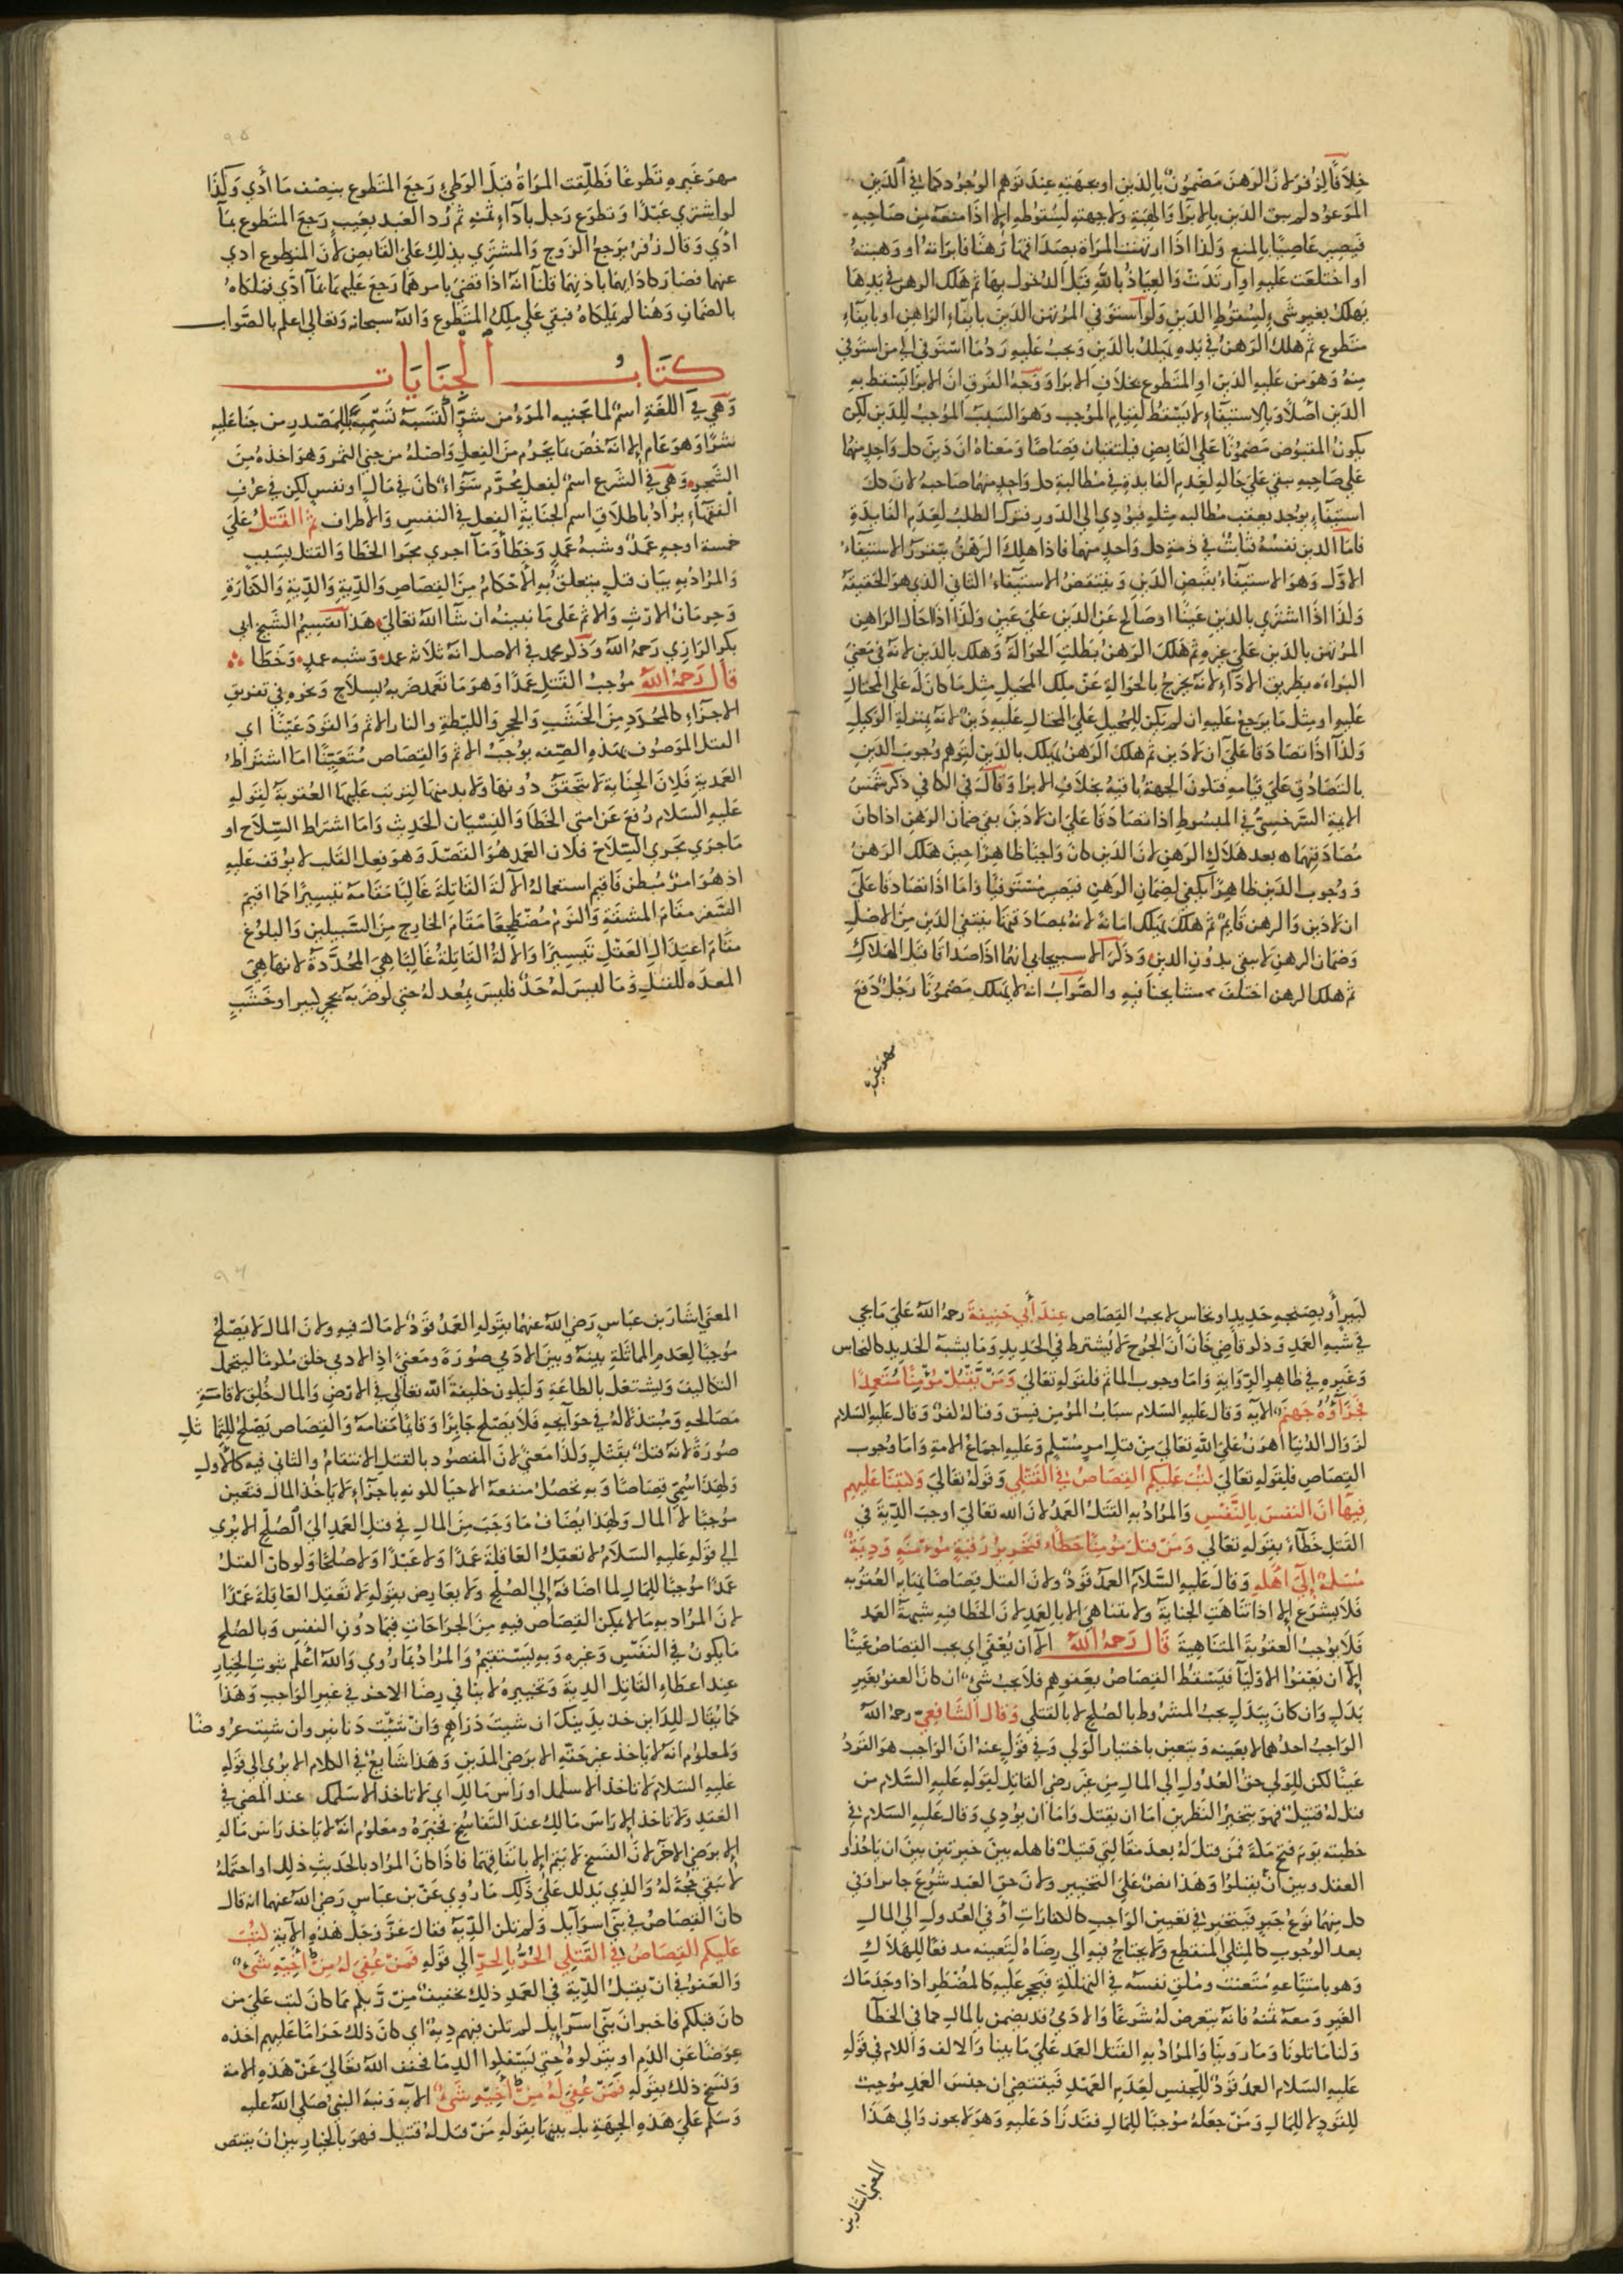 خلافا لزفر لان الرهن مضمون بالدين او بجهته عند توهم الوجود كما في الدين
الموعود ولم يبق الدين بالابرا والهبة ولا جهته لسقوطه الا اذا منعه من صاحبه
فيصير غاصبا بالمنع وكذا اذا ارتهنت المراة بصداقها رهنا فابراته او وهبته
او اختلعت عليه او ارتدت والعياذ بالله قبل الدخول بها ثم هلك الرهن في يدها
يهلك بغير شيء لسقوط الدين ولو استوفي المرتهن الدين بايفاء الراهن او بايفاء
متطوع ثم هلك الرهن في يده يهلك بالدين ويجب عليه رد ما استوفي الي من استوفي
منه وهو من عليه الدين او المتطوع بخلاف الابرا ووجه الفرق ان الابرا يسقط به
الدين اصلا وبالاستيفاء لا يسقط لقيام الموجب وهو السبب الموجب للدين لكن
يكون المقبوض مضمونا على القابض فيلتقيان قصاصا ومعناه ان دين كل واحد منهما
على صاحبه بقي على حاله لعدم الفايدة في مطالبة كل واحد منهما صاحبه لان كل
استيفاء يوجد يعقب مطالبه مثله فيودي الى الدور فترك الطلب لعدم الفايدة
فاما الدين نفسه ثابت في ذمة كل واحد منهما فاذا هلك الرهن يتقرر الاستيفاء
الاول وهو الاستيفاء بقبض الدين وينتقض الاستيفاء الثاني الذي هو الحقيقة
وكذا اذا اشتري بالدين عينا او صالح عن الدين على عين وكذا اذا احال الراهن
المرتهن بالدين على غيره ثم هلك الرهن بطلت الحوالة وهلك بالدين لانه في معني
البراءه بطريق الاداء لانه يخرج بالحوالة عن ملك المحيل مثل ما كان له على المحتال
عليه او مثل ما يرجع عليه ان لم يكن للمحيل على المحتال عليه دين لانه بمنزلة الوكيل
وكذا اذا تصادقا على ان لا دين ثم هلك الرهن يهلك بالدين لتوهم وجوب الدين
بالتصادق على قيامه فتكون الجهة باقية بخلاف الابرا وقال في الكافي ذكر شمس
الايمة السرخسي في المبسوط اذا تصادقا على ان لا دين بقي ضمان الرهن اذا كان
تصادقهما بعد هلاك الرهن لان الدين كان واجبا ظاهرا حين هلك الرهن
ووجوب الدين ظاهرا يكفي لضمان الرهن فيصير مستوفيا واما اذا تصادقا على
ان لا دين والرهن قايم ثم هلك يهلك امانة لانه بتصادقهما ينتفي الدين من الاصل
وضمان الرهن لا يبقى بدون الدين وذكر الاسبيجابي انهما اذا تصادقا قبل الهلاك
ثم هلك الرهن اختلف مشايخنا فيه والصواب انه لا يهلك مضمونا رجل دفع
مهر غيره
٩٥
مهر غيره تطوعا فطلقت المراة قبل الوطي رجع المتطوع بنصف ما أدي وكذا
لو اشتري عبدا وتطوع رجل باداء ثمنه ثم رد العبد بعيب رجع المتطوع بما
ادي وقال زفر يرجع الزوج والمشتري بذلك على القابض لان المتطوع ادي
عنهما فصار كادايهما باذنهما قلنا انه اذا قضي بامرهما رجع عليهما بما ادي فملكاه
بالضمان وهنا لم يملكاه فبقي علي ملك المتطوع والله سبحانه وتعالي اعلم بالصواب
كتاب الجنايات
وهي في اللغة اسم لما تجنيه المرء من شر اكتسبه تسمية للمصدر من جنا عليه
شرا وهو عام الا انه خص بما يحرم من الفعل واصله من جني الثمر وهو اخذه من
الشجر وهي في الشرع اسم لفعل محرم سواء كان في مال او نفس لكن في عرف
الفقهاء يراد باطلاق اسم الجناية الفعل في النفس والاطراف ثم القتل علي
خمسة اوجه عمد وشبه عمد وخطأ وما اجري مجرا الخطا والقتل بسبب
والمراد به بيان قتل يتعلق به الاحكام من القصاص والدية والدية والكفارة
وحرمان الارث والاثم على ما نبينه ان شا الله تعالي هذا تقسيم الشيخ ابي
بكر الرازي رحمه الله وذكر محمد في الاصل انه ثلاثه عمد وشبه عمد وخطا
قال رحمه الله موجب القتل عمدا وهو ما تعمد ضربه بسلاح ونحوه في تفريق
الاجزاء كالمحدد من الخشب والحجر والليطة والنار الاثم والقود عينا اي
القتل الموصوف بهذه الصفه يوجب الاثم والقصاص متعينا اما اشتراط
العمدية فلان الجناية لا تتحقق دونها ولا بد منها ليترتب عليها العقوبة لقوله
عليه السلام رفع عن امتي الخطا والنسيان الحديث واما اشتراط السلاح او
ما جري مجري السلاح فلان العمد هو القصد وهو فعل القلب لا يوقف عليه
اذ هو امر مبطن فاقيم استعمال الآلة القاتلة غالبا مقامه تيسيرا كما اقيم
السفر مقام المشقة والنوم مضطجعا مقام الخارج من السبيلين والبلوغ
مقام اعتدال العقل تيسيرا والالة القاتلة غالبا هي المحددة لانها هي
المعده للقتل وما ليس له حد فليس بمعد له حتي لو ضربه بحجر كبير او خشب
كبير أو بصنجه حديد او نحاس لا يجب القصاص عند أبي حنيفة رحمه الله على ما يجي
في شبه العمد وذكر قاضي خان أن الجرح لا يشترط في الحديد وما يشبه الحديد كالنحاس
وغيره في ظاهر الرواية واما وجوب الماثم فلقوله تعالي ومن يقتل مؤمنا متعمدا
فجزآؤه جهنم الآيه وقال عليه السلام سباب المؤمن فسق وقتاله كفر وقال عليه السلام
لزوال الدنيا أهون على الله تعالي من قتل امرء مسلم وعليه اجماع الامة واما وجوب
القصاص فلقوله تعالي كتب عليكم القصاص في القتلي وقوله تعالي وكتبنا عليهم
فيها ان النفس بالنفس والمراد به القتل العمد لان الله تعالي اوجب الدية في
القتل خطآء بقوله تعالي ومن قتل مومنا خطاء فتحرير رقبة مومنة ودية
مسلمة إلى اهله وقال عليه السلام العمد قود ولان القتل قصاصا نهايه العقوبه
فلا يشرع الا اذا تناهت الجناية ولا تتناهي الا بالعمد لان الخطا فيه شبهة العمد
فلا يوجب العقوبة المتناهية قال رحمه الله الا ان يعفي اي يجب القصاص عينا
إلا ان يعفوا الاوليا فيسقط القصاص بعفوهم فلا يجب شيء ان كان العفو بغير
بدل وان كان ببدل يجب المشروط بالصلح لا بالقتلي وقال الشافعي رحمه الله
الواجب احدهما لا بعينه ويتعين باختيار الولي وفي قول عنه ان الواجب هو القود
عينا لكن للولي حق العدول الي المال من غير رضي القاتل لقوله عليه السلام من
قتل له قتيل فهو بخير النظرين اما ان يقتل واما ان يودي وقال عليه السلام في
خطبته يوم فتح مكة فمن قتل له بعد مقالتي قتيل فاهله بين خيرتين بين ان ياخذو
العقل وبين ان يقتلوا وهذا نص على التخيير ولان حق العبد شرع جابرا وفي
كل منهما نوع جبر فيتخير في تعيين الواجب كالكفارات أو في العدول الي المال
بعد الوجوب كالمثلي المنقطع ولا يحتاج فيه الي رضاه لتعينه مدفعا للهلاك
وهو بامتناعه متعنت وملق نفسه في التهلكة فيجبر عليه كالمضطر اذا وجد مال
الغير ومعه ثمنه فانه يتعرض له شرعا والادمي قد يضمن بالمال كما في الخطأ
ولنا ما تلونا وما روينا والمراد به القتل العمد على ما بينا والالف واللام في قوله
عليه السلام العمد قود للجنس لعدم العهد فيقتضي ان جنس العمد موجب
للقود لا للمال ومن جعله موجبا للمال فقد زاد عليه وهو لا يجوز والي هذا
المعني اشار بن
٩٦
المعني اشار بن عباس رضي الله عنهما بقوله العمد قود لا مال فيه ولان المال لا يصلح
موجبا لعدم المماثلة بينه وبين الادمي صورة ومعني اذ الادمي خلق مكرما ليتحمل
التكاليف وليشتغل بالطاعة وليكون خليفة الله تعالي في الارض والمال خلق لاقامة
مصالحه ومبتذلا له في حوآيجه فلا يصلح جابرا وقايما مقامه والقصاص يصلح للتماثل
صورة لانه قتل بقتل وكذا معني لان المقصود بالقتل الانتقام والثاني فيه كالاول
ولهذا سمي قصاصا وبه تحصل منفعة الاحيا لكونه باجزاء لا ياخذ المال فتعين
موجبا لا المال ولهذا يضاف ما وجب من المال في قتل العمد الي الصلح الا يري
الي قوله عليه السلام لا تعقل العاقلة عمدا ولا عبدا ولا صلحا ولو كان القتل
عمدا موجبا للمال لما اضافه إلى الصلح ولا يعارض بقوله لا تعقل العاقلة عمدا
لان المراد به ما لا يمكن القصاص فيه من الجراحات فيما دون النفس وبالصلح
ما يكون في النفس وغيره وبه يستقيم والمراد بما روي والله اعلم ثبوت الخيار
عند اعطاء القاتل الدية وتخييره لا ينافي رضا الاخر في غير الواجب وهذا
كما يقال للداين خذ بدينك ان شيت دراهم وان شيت دنانير وان شيت عروضا
ومعلوم انه لا ياخذ غير حقه الا برضي المدين وهذا شايع في الكلام الا يري الي قوله
عليه السلام لا تاخذ الا سلمك او راس مالك اي لا تاخذ الا سلمك عند المضي في
العقد ولا تاخذ إلا راس مالك عند التفاسخ فخيره ومعلوم انه لا ياخذ راس ماله
إلا برضي الاخر لان الفسخ لا يتم إلا باتفاقهما فاذا كان المراد بالحديث ذلك او احتمله
لا تبقي حجة له والذي يدلك على ذلك ما روي عن بن عباس رضي الله عنهما انه قال
كان القصاص في بني اسرآيل ولم تكن الدية فقال عز وجل هذه الآية كتب
عليكم القصاص في القتلي الحر بالحر الي قوله فمن عفي له من أخيه شيء
والعفو في ان يقبل الدية في العمد ذلك تخفيف من ربكم بما كان كتب علي من
كان قبلكم فاخبر ان بني اسرآيل لم تكن فيهم دية اي كان ذلك حراما عليهم اخذه
عوضا عن الدم او يتركوه حتي يستقلوا الدما فخفف الله تعالي عن هذه الامة
ونسخ ذلك بقوله فمن عفي له من أخيه شيء الآيه ونبه النبي صلى الله عليه
وسلم على هذه الجهة بل بينها بقوله من قتل له قتيل فهو بالخيار بين ان يقتص